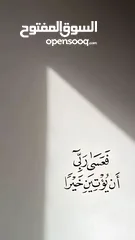 السوق المفتوح
opensooq.com
فَعَسَىٰ رَبِّي
أَن يُؤْتِيَنِ خَيْرًا